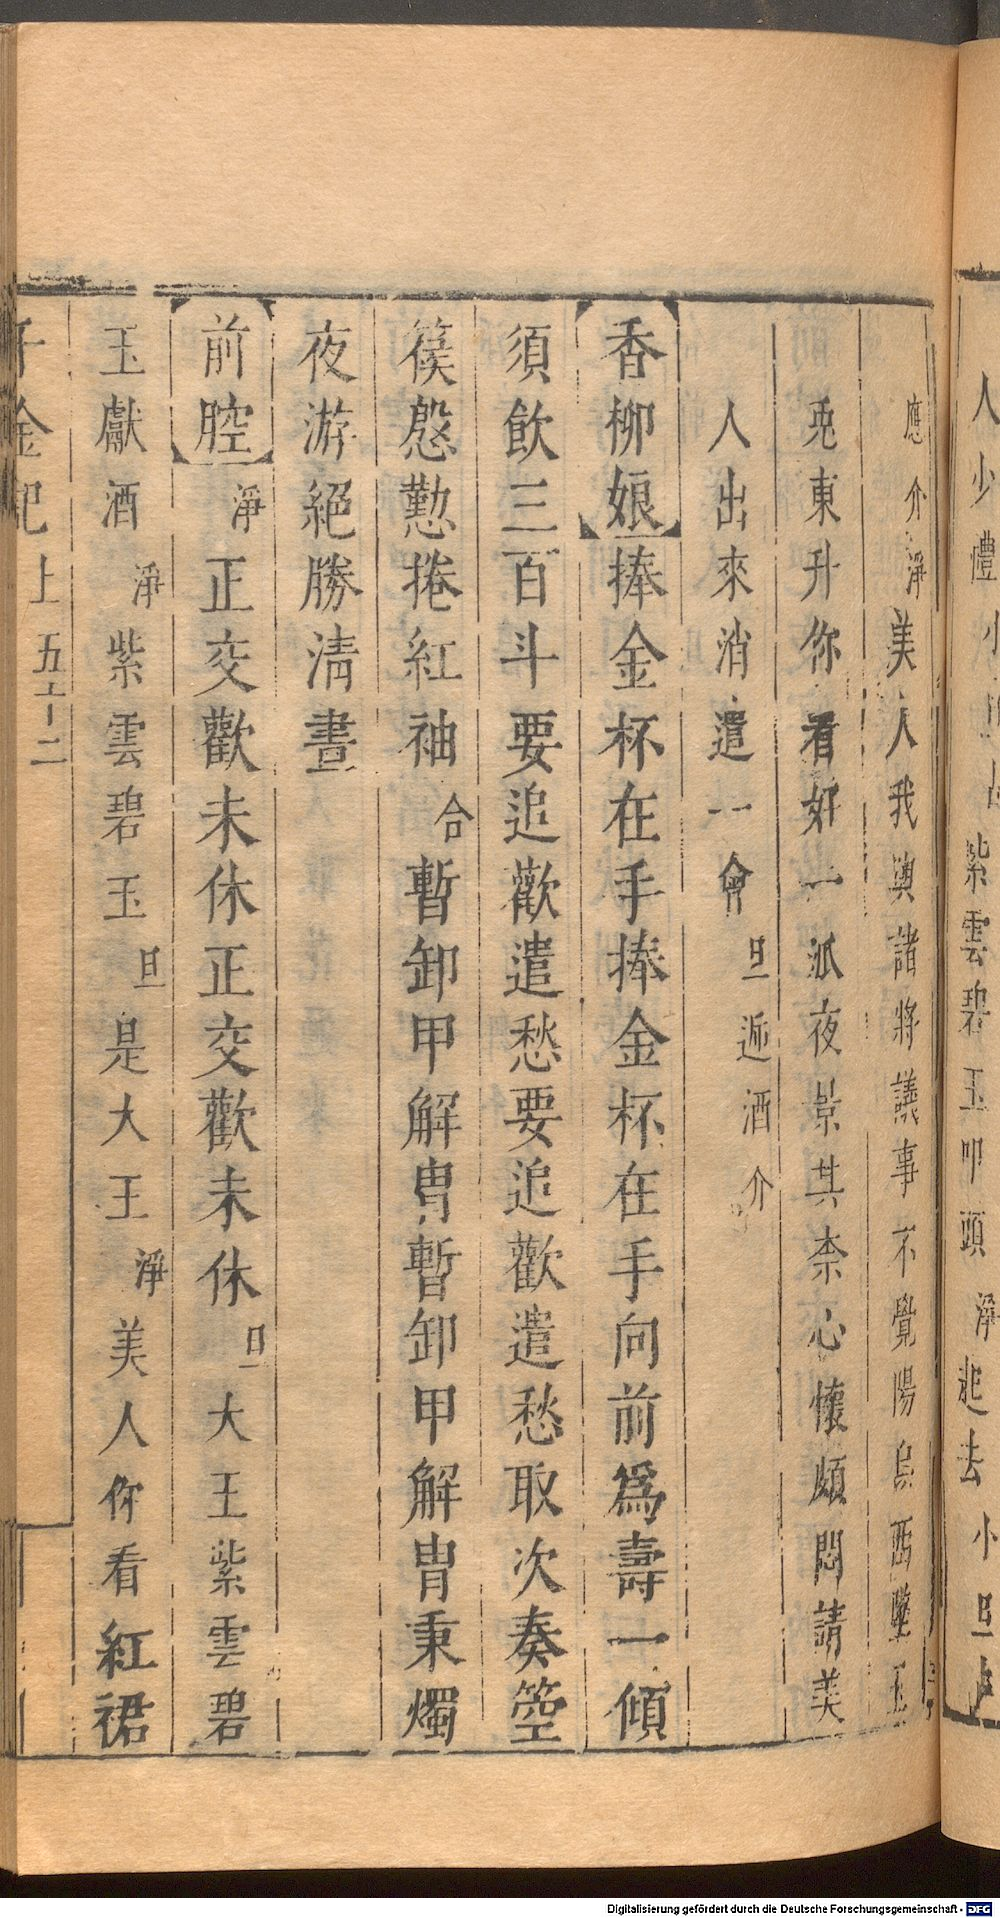 人少禮 紫雲碧玉叩頭淨起去小旦
應介淨美人我與諸將議事不覺陽烏西墜玉
兎東升你看好一派夜景其柰心懷頗悶請美
人出來消遣一會旦遞酒介
香柳娘捧金杯在手捧金杯在手向前爲壽一傾
須飲三百斗要追歡遣愁要追歡遣愁取次奏箜
篌慇懃捲紅袖合暫卸甲解冑暫卸甲解冑秉燭
夜游絕勝清晝
前腔淨正交歡未休正交歡未休旦大王紫雲碧
玉獻酒淨紫雲碧玉旦是大王淨美人你看紅裙
千金記上 五十二
Digitalisierung gefördert durch die Deutsche Forschungsgemeinschaft - DFG